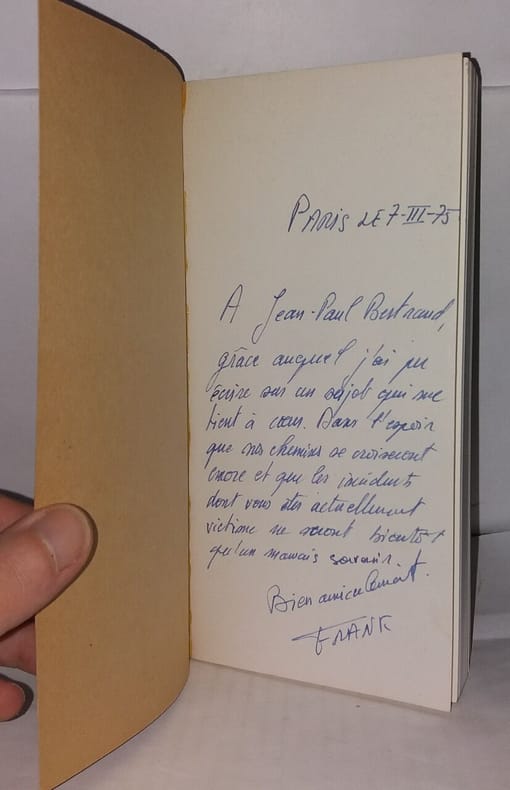 PARIS LE 7-III-75
A Jean-Paul Bertrand,
grâce auquel j'ai pu
écrire sur un sujet qui me
tient à cœur. Dans l'espoir
que nos chemins se croiseront
encore et que les incidents
dont vous êtes actuellement
victime ne seront bientôt
qu'un mauvais souvenir.
Bien amicalement.
FRANK